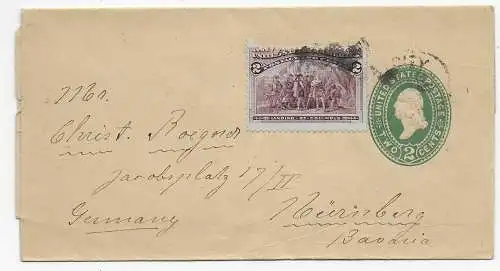 2 2
LANDING OF COLUMBUS
CITY
UNITED STATES POSTAGE
TWO 2 CENTS
Mr.
Christ. Roegner
Jacobsplatz 17/II
Germany
Nürnberg
Bavaria